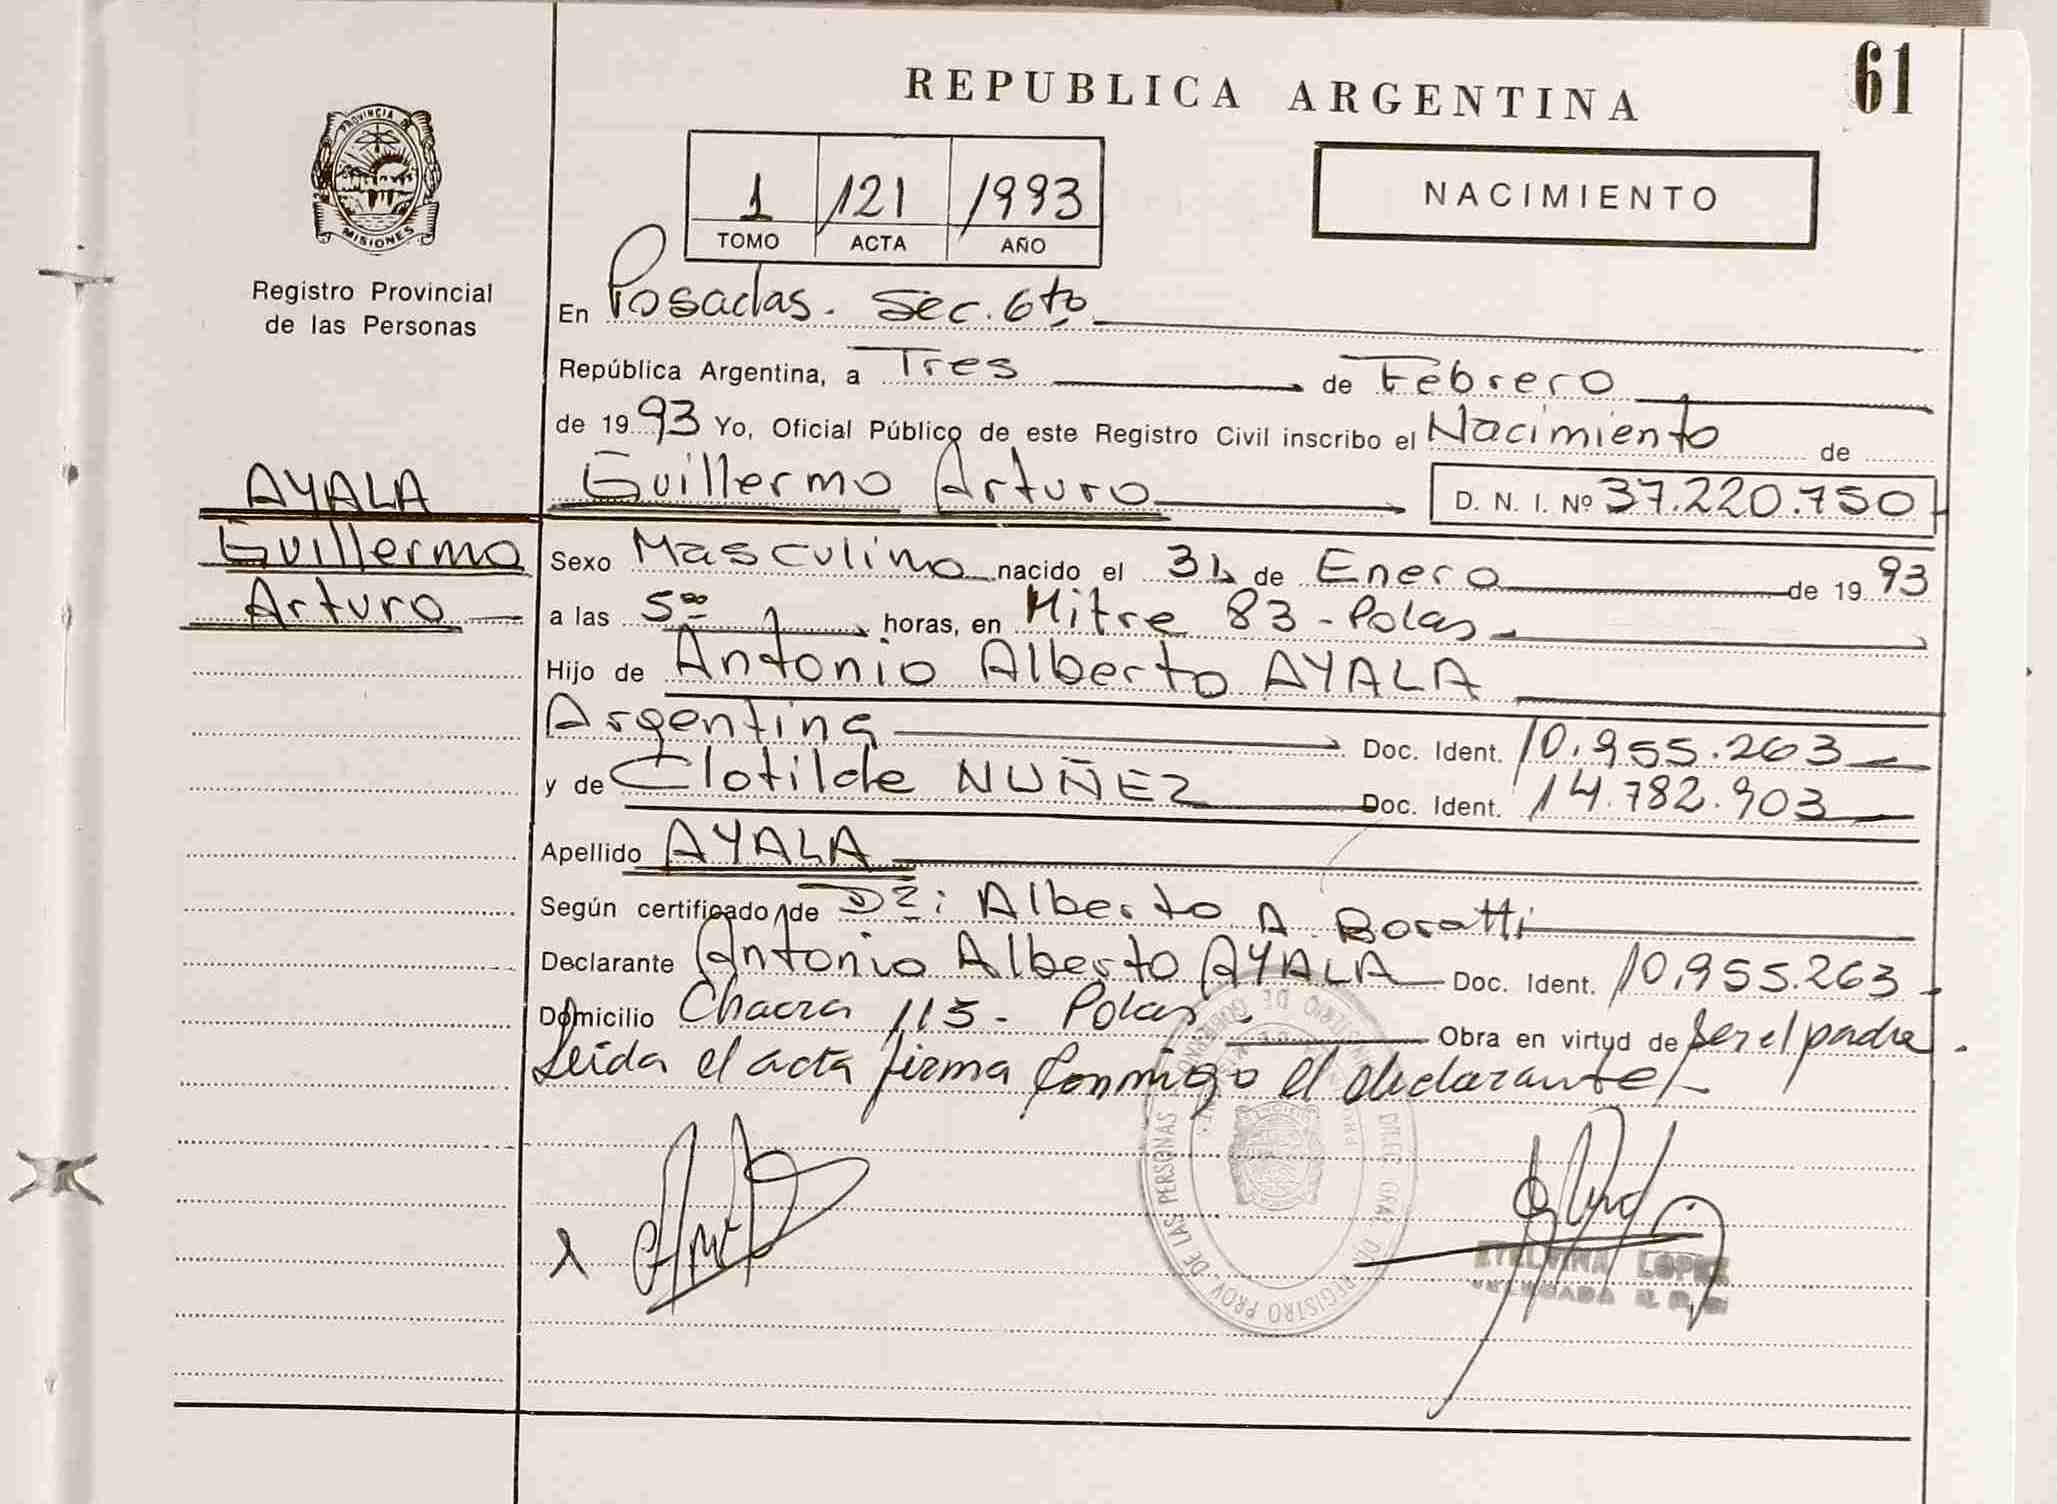 61
REPUBLICA ARGENTINA
PROVINCIA DE
MISIONES
Registro Provincial
de las Personas
1 121 1993
TOMO ACTA AÑO
NACIMIENTO
En Posadas. Sec. 6to
República Argentina, a Tres de Febrero
de 1993 Yo, Oficial Público de este Registro Civil inscribo el Nacimiento de
AYALA
Guillermo
Arturo
Guillermo Arturo D. N. I. Nº 37.220.750
Sexo Masculino nacido el 31 de Enero de 1993
a las 5 horas, en Mitre 83 - Pdas
Hijo de Antonio Alberto AYALA
Argentina Doc. Ident. 10.955.263
y de Clotilde NUÑEZ Doc. Ident. 14.782.903
Apellido AYALA
Según certificado de Dr: Alberto A. Boratti
Declarante Antonio Alberto AYALA Doc. Ident. 10.955.263
Domicilio Chacra 115 - Pdas. Obra en virtud de ser el padre.
Leida el acta firma conmigo el declarante
REGISTRO PROV. DE LAS PERSONAS
ETELVINA LOPEZ